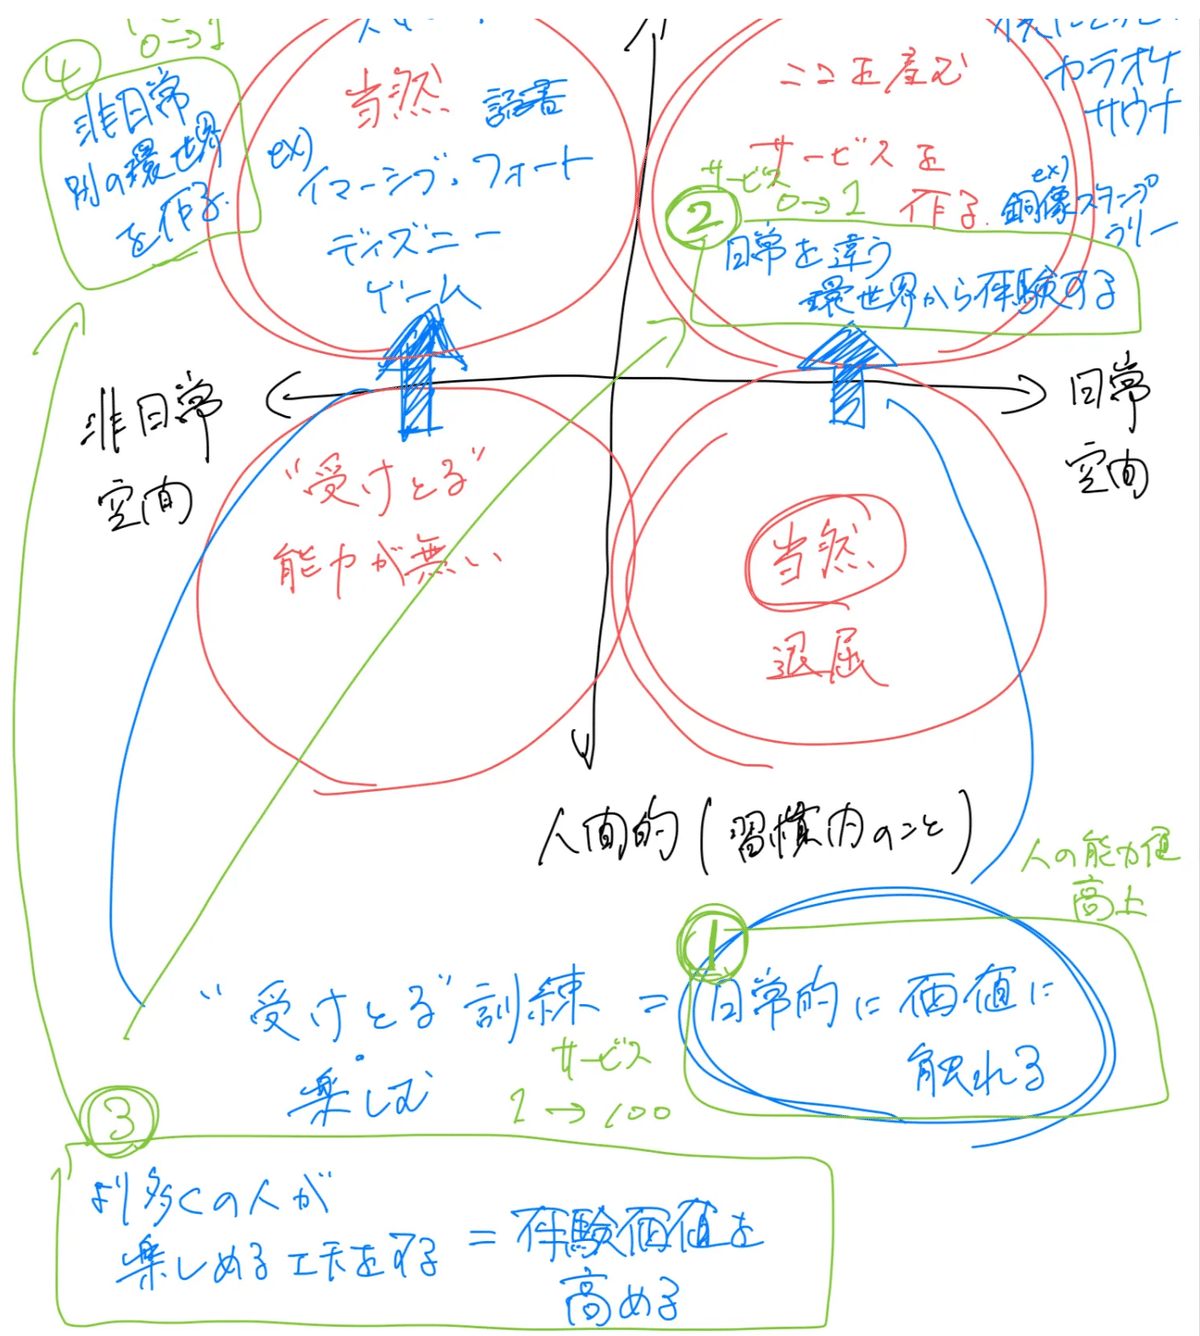 0→1
④
非日常
別の環世界
を作る.
当然 読書
ex)
イマーシブ・フォート
ディズニー
ゲーム
ココを産む
サービスを
作る.
カラオケ
サウナ
ex)
銅像スタンプ
ラリー
サービス
0→1
②
日常を違う
環世界から体験する
非日常
空間
日常
空間
"受けとる"
能力が無い
当然
退屈
人間的(習慣内のこと)
人の能力値
高上
①
"受けとる"訓練 = 日常的に価値に
触れる
楽しむ
サービス
1→100
③
より多くの人が
楽しめる工夫をする = 体験価値を
高める